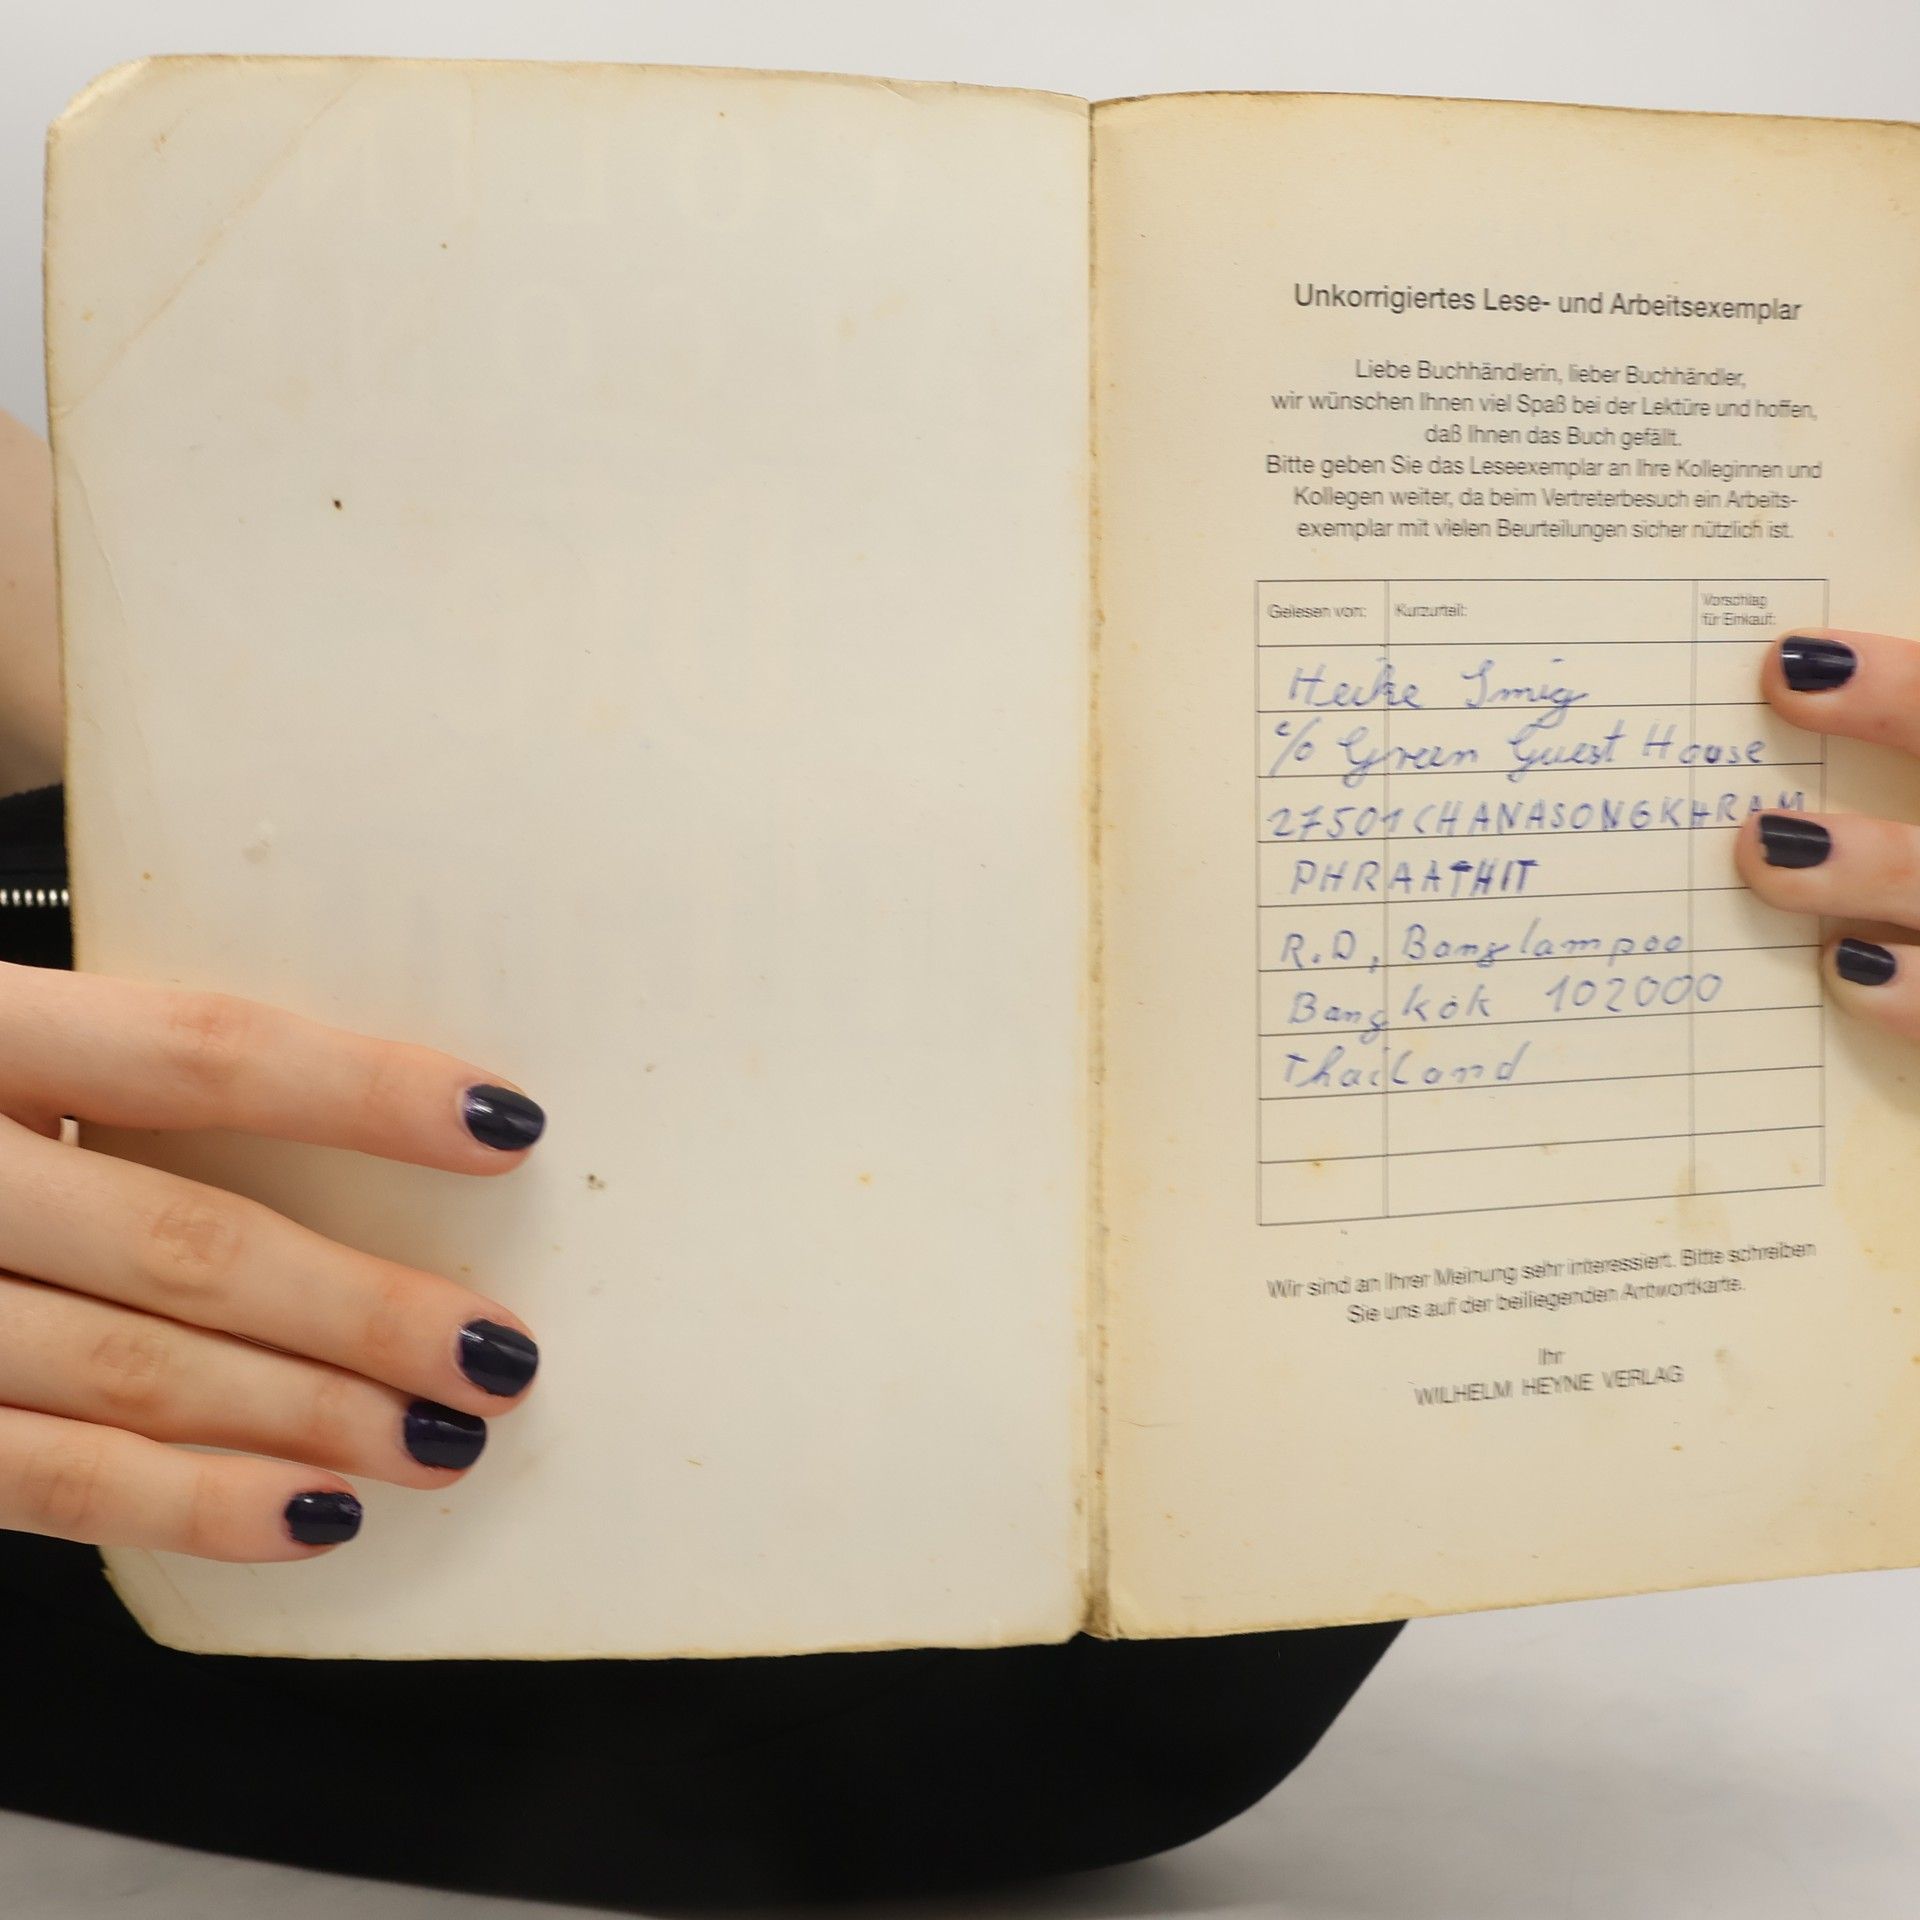 Unkorrigiertes Lese- und Arbeitsexemplar
Liebe Buchhändlerin, lieber Buchhändler,
wir wünschen Ihnen viel Spaß bei der Lektüre und hoffen,
daß Ihnen das Buch gefällt.
Bitte geben Sie das Leseexemplar an Ihre Kolleginnen und
Kollegen weiter, da beim Vertreterbesuch ein Arbeits-
exemplar mit vielen Beurteilungen sicher nützlich ist.
Gelesen von: Kurzurteil: Vorschlag
für Einkauf:
Heike Smig
c/o Green Guest House
27501 CHANASONGKHRAM
PHRAATHIT
R.D, Banglampoo
Bangkok 102000
Thailand
Wir sind an Ihrer Meinung sehr interessiert. Bitte schreiben
Sie uns auf der beiliegenden Antwortkarte.
Ihr
WILHELM HEYNE VERLAG